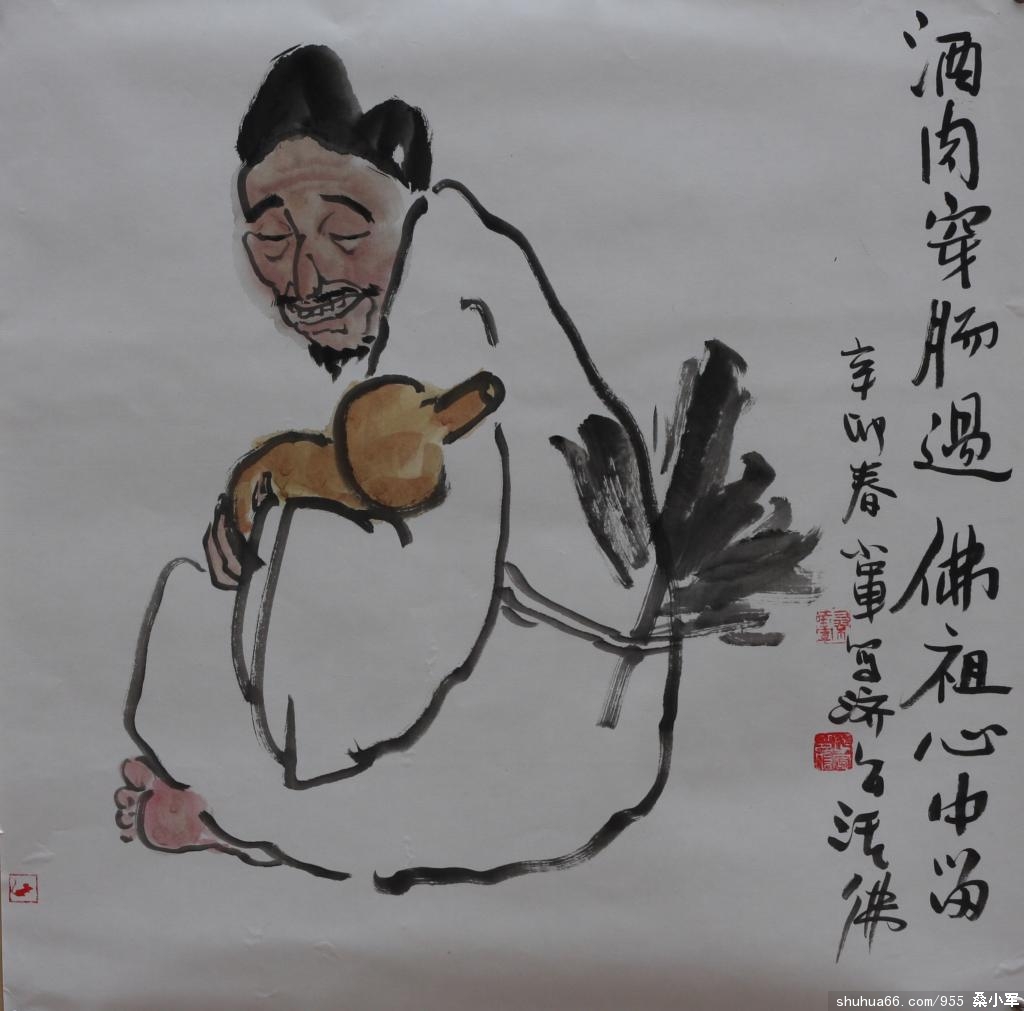 酒肉穿肠過佛祖心中留
辛卯春小軍写济公活佛
shuhua66.com/955 桑小军